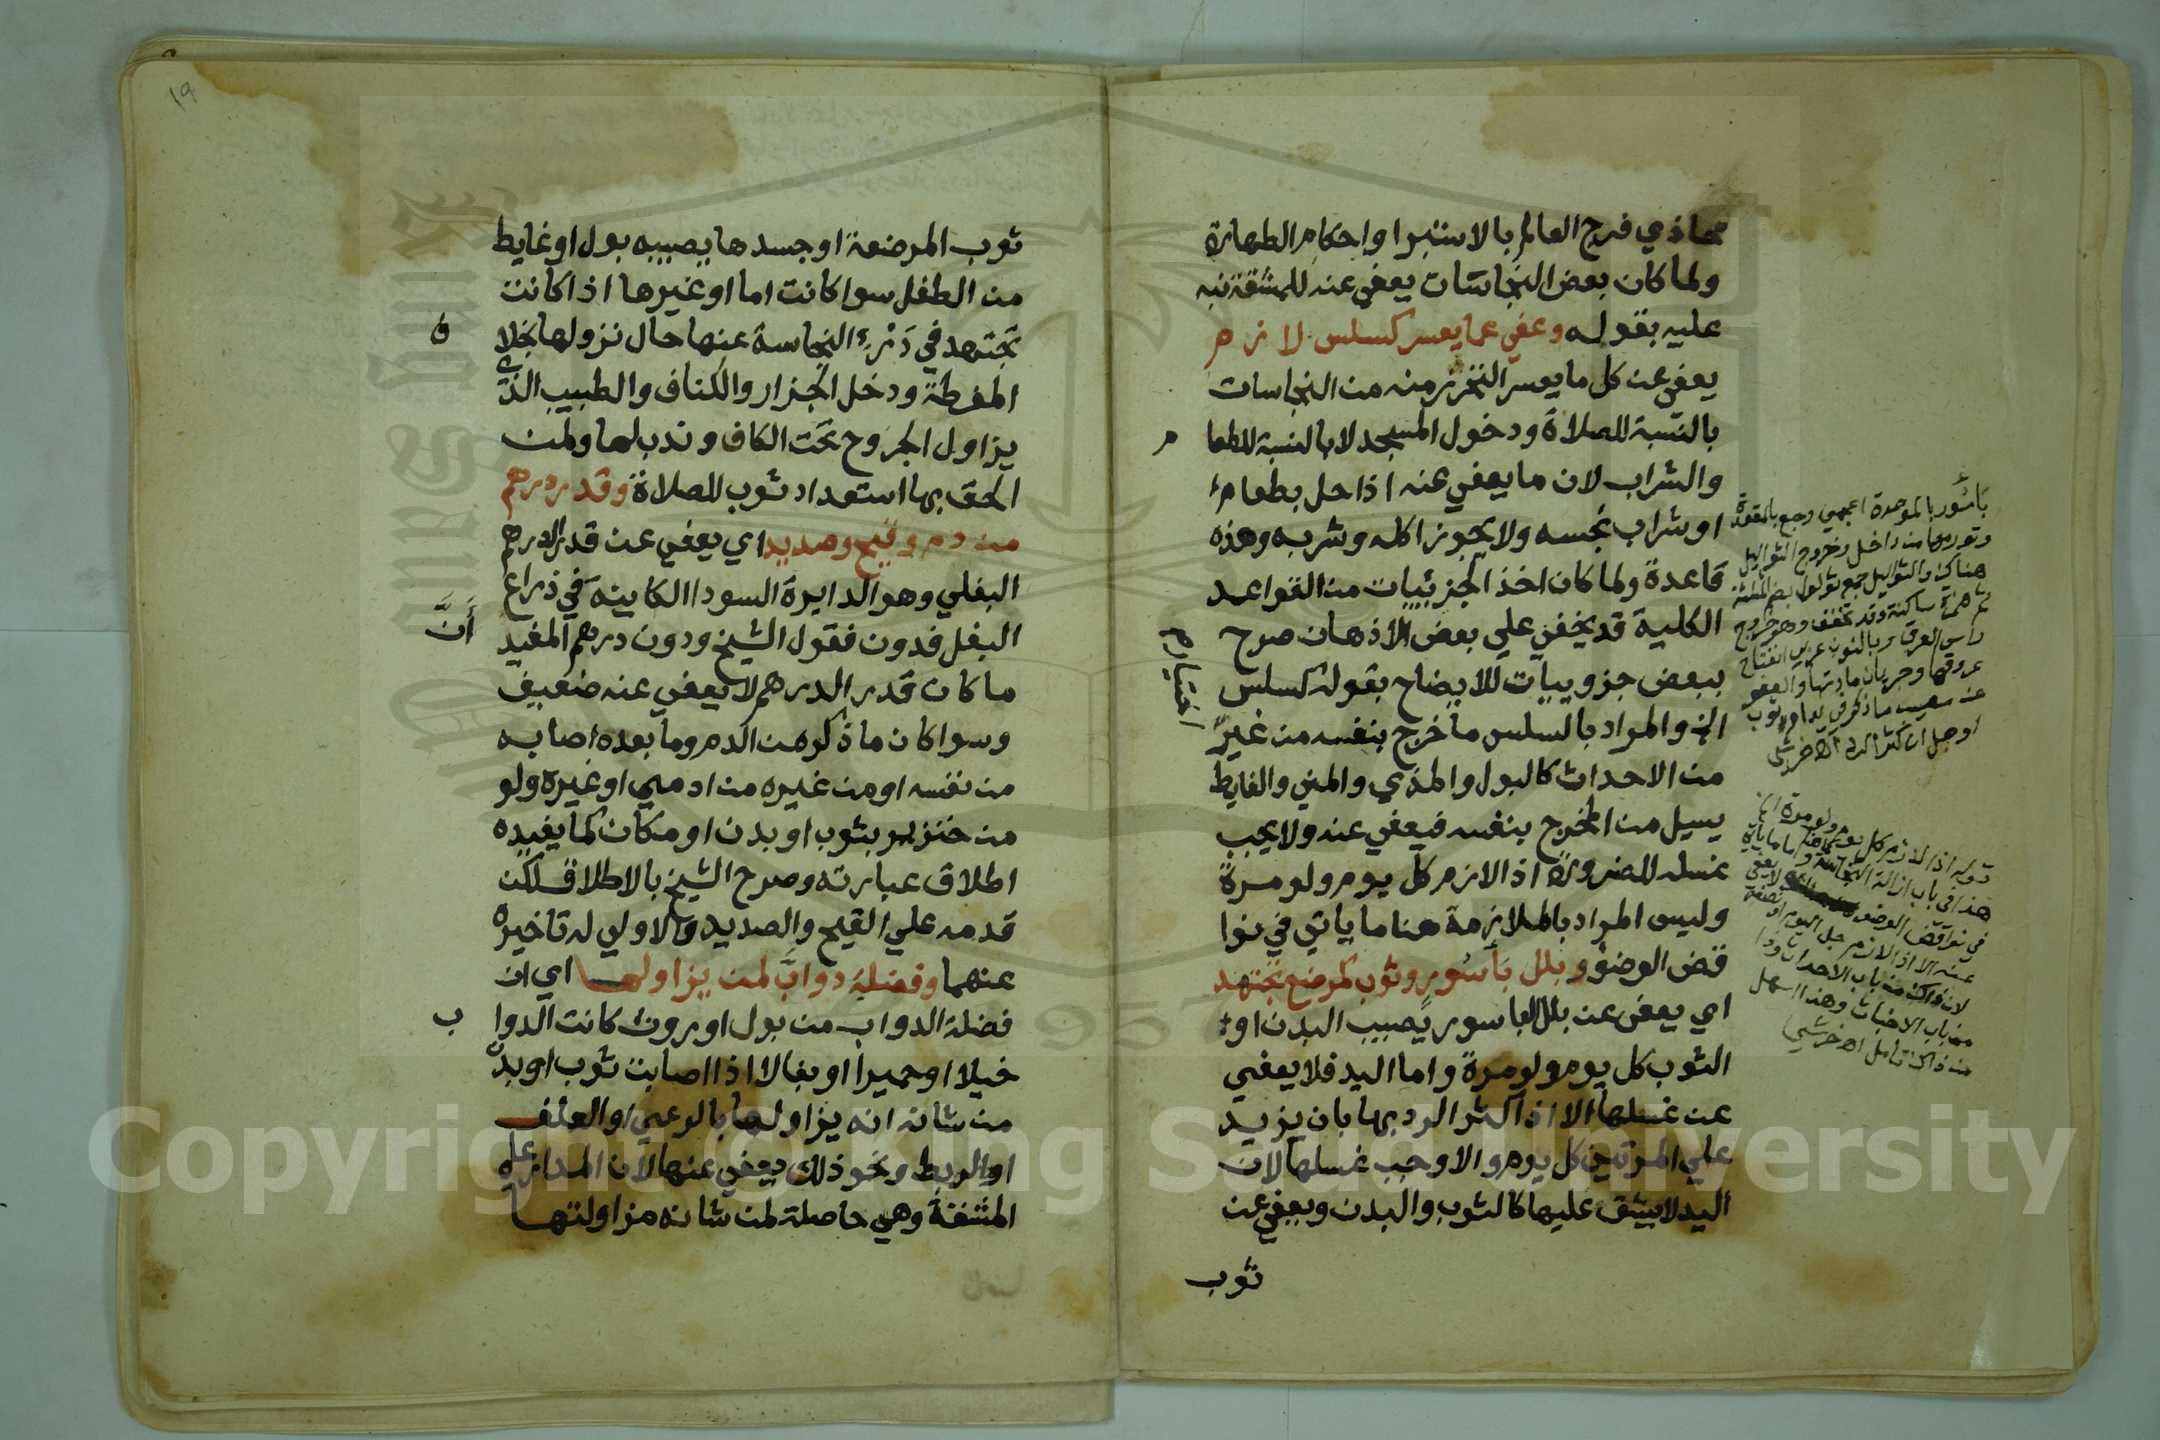 محاذي فرج العالم بالاستبرا واحكام الطهارة
ولما كان بعض النجاسات يعفي عنه للمشقة نبه
عليه بقوله وعفي عما يعسر كسلس لازم
يعفي عن كل ما يعسر التحرز منه من النجاسات
بالنسبة للصلاة ودخول المسجد لا بالنسبة للطعا
م
والشراب لان ما يعفي عنه اذا حل بطعام
او شراب نجسه ولا يجوز اكله وشربه وهذه
قاعدة ولما كان اخذ الجزئيات من القواعد
الكلية قد يخفي علي بعض الاذهان صرح
ببعض جزوييات للايضاح بقوله كسلس
الخ والمراد بالسلس ما خرج بنفسه من غير
اختيار
من الاحداث كالبول والمذي والمني والغايط
يسيل من المخرج بنفسه فيعفي عنه ولا يجب
غسله للضرورة اذا لازم كل يوم ولو مرة
وليس المراد بالملازمة هنا ما ياتي في نوا
قض الوضوء وبلل باسور وثوب كمرضع تجتهد
اي يعفي عن بلل الباسور يصيب البدن او
الثوب كل يوم ولو مرة واما اليد فلا يعفي
عن غسلها الا اذا كثر الرد بها بان يزيد
علي المرتين كل يوم والا وجب غسلها لان
اليد لا يشق عليها كالثوب والبدن ويعفي عن
ثوب
باسور بالموحدة اعجمي وجع بالمقعدة
وتورمها من داخل وخروج الثواليل
هناك والثواليل جمع ثولول بضم المثلثة
ثم همزة ساكنة وقد تخفف وهو خروج
راس العرق وبالنون عربي انفتاح
عروقها وجريان مادتها والعفو
او جبل ان كثر الرد الا خرشي
قوله اذا لازم كل يوم ولو مرة الخ
هذا في باب ازالة النجاسة واما ما ياتي
في نواقض الوضوء لا يعفي
عنه الا اذا لازم جل اليوم او نصفه
لان ذاك من باب الاحداث وهذا
من باب الاخباث وهذا اسهل
من ذاك تامل اه خرشي
١٩
ثوب المرضعة او جسدها يصيبه بول او غايط
من الطفل سوا كانت اما او غيرها اذا كانت
تجتهد في درء النجاسة عنها حال نزولها بخلا
ف
المفرطة ودخل الجزار والكناف والطبيب الذي
يزاول الجروح تحت الكاف وندب لها ولمن
الحق بها استعداد ثوب للصلاة وقدر درهم
من دم وقيح وصديد اي يعفي عن قدر الدرهم
البغلي وهو الدايرة السودا الكاينة في ذراع
البغل فدون فقول الشيخ ودون درهم المفيد
أنَّ
ما كان قدر الدرهم لا يعفي عنه ضعيف
وسوا كان ما ذكره من الدم وما بعده اصابه
من نفسه او من غيره من ادمي او غيره ولو
من خنزير بثوب او بدن او مكان كما يفيده
اطلاق عبارته وصرح الشيخ بالاطلاق لكن
قدمه علي القيح والصديد والاولي له تاخيره
عنهما وفضلة دواب لمن يزاولها اي ان
فضلة الدواب من بول او روث كانت الدوا
ب
خيلا او حميرا او بغالا اذا اصابت ثوب او بدن
من شانه انه يزاولها بالرعي او العلف
او الربط ونحو ذلك يعفي عنها لان المدار علي
المشقة وهي حاصلة لمن شانه مزاولتها